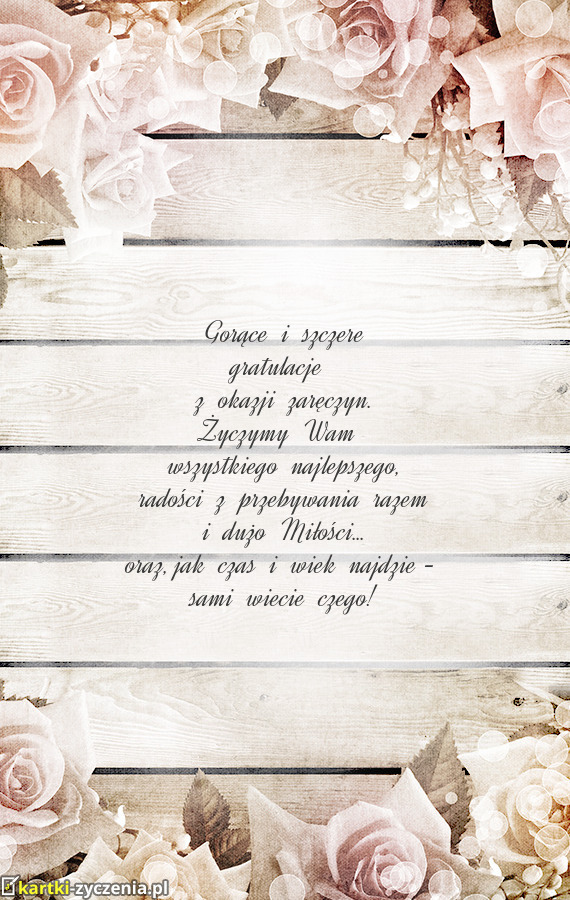 Gorące i szczere
gratulacje
z okazji zaręczyn.
Życzymy Wam
wszystkiego najlepszego,
radości z przebywania razem
i dużo Miłości...
oraz, jak czas i wiek najdzie -
sami wiecie czego!
kartki-zyczenia.pl